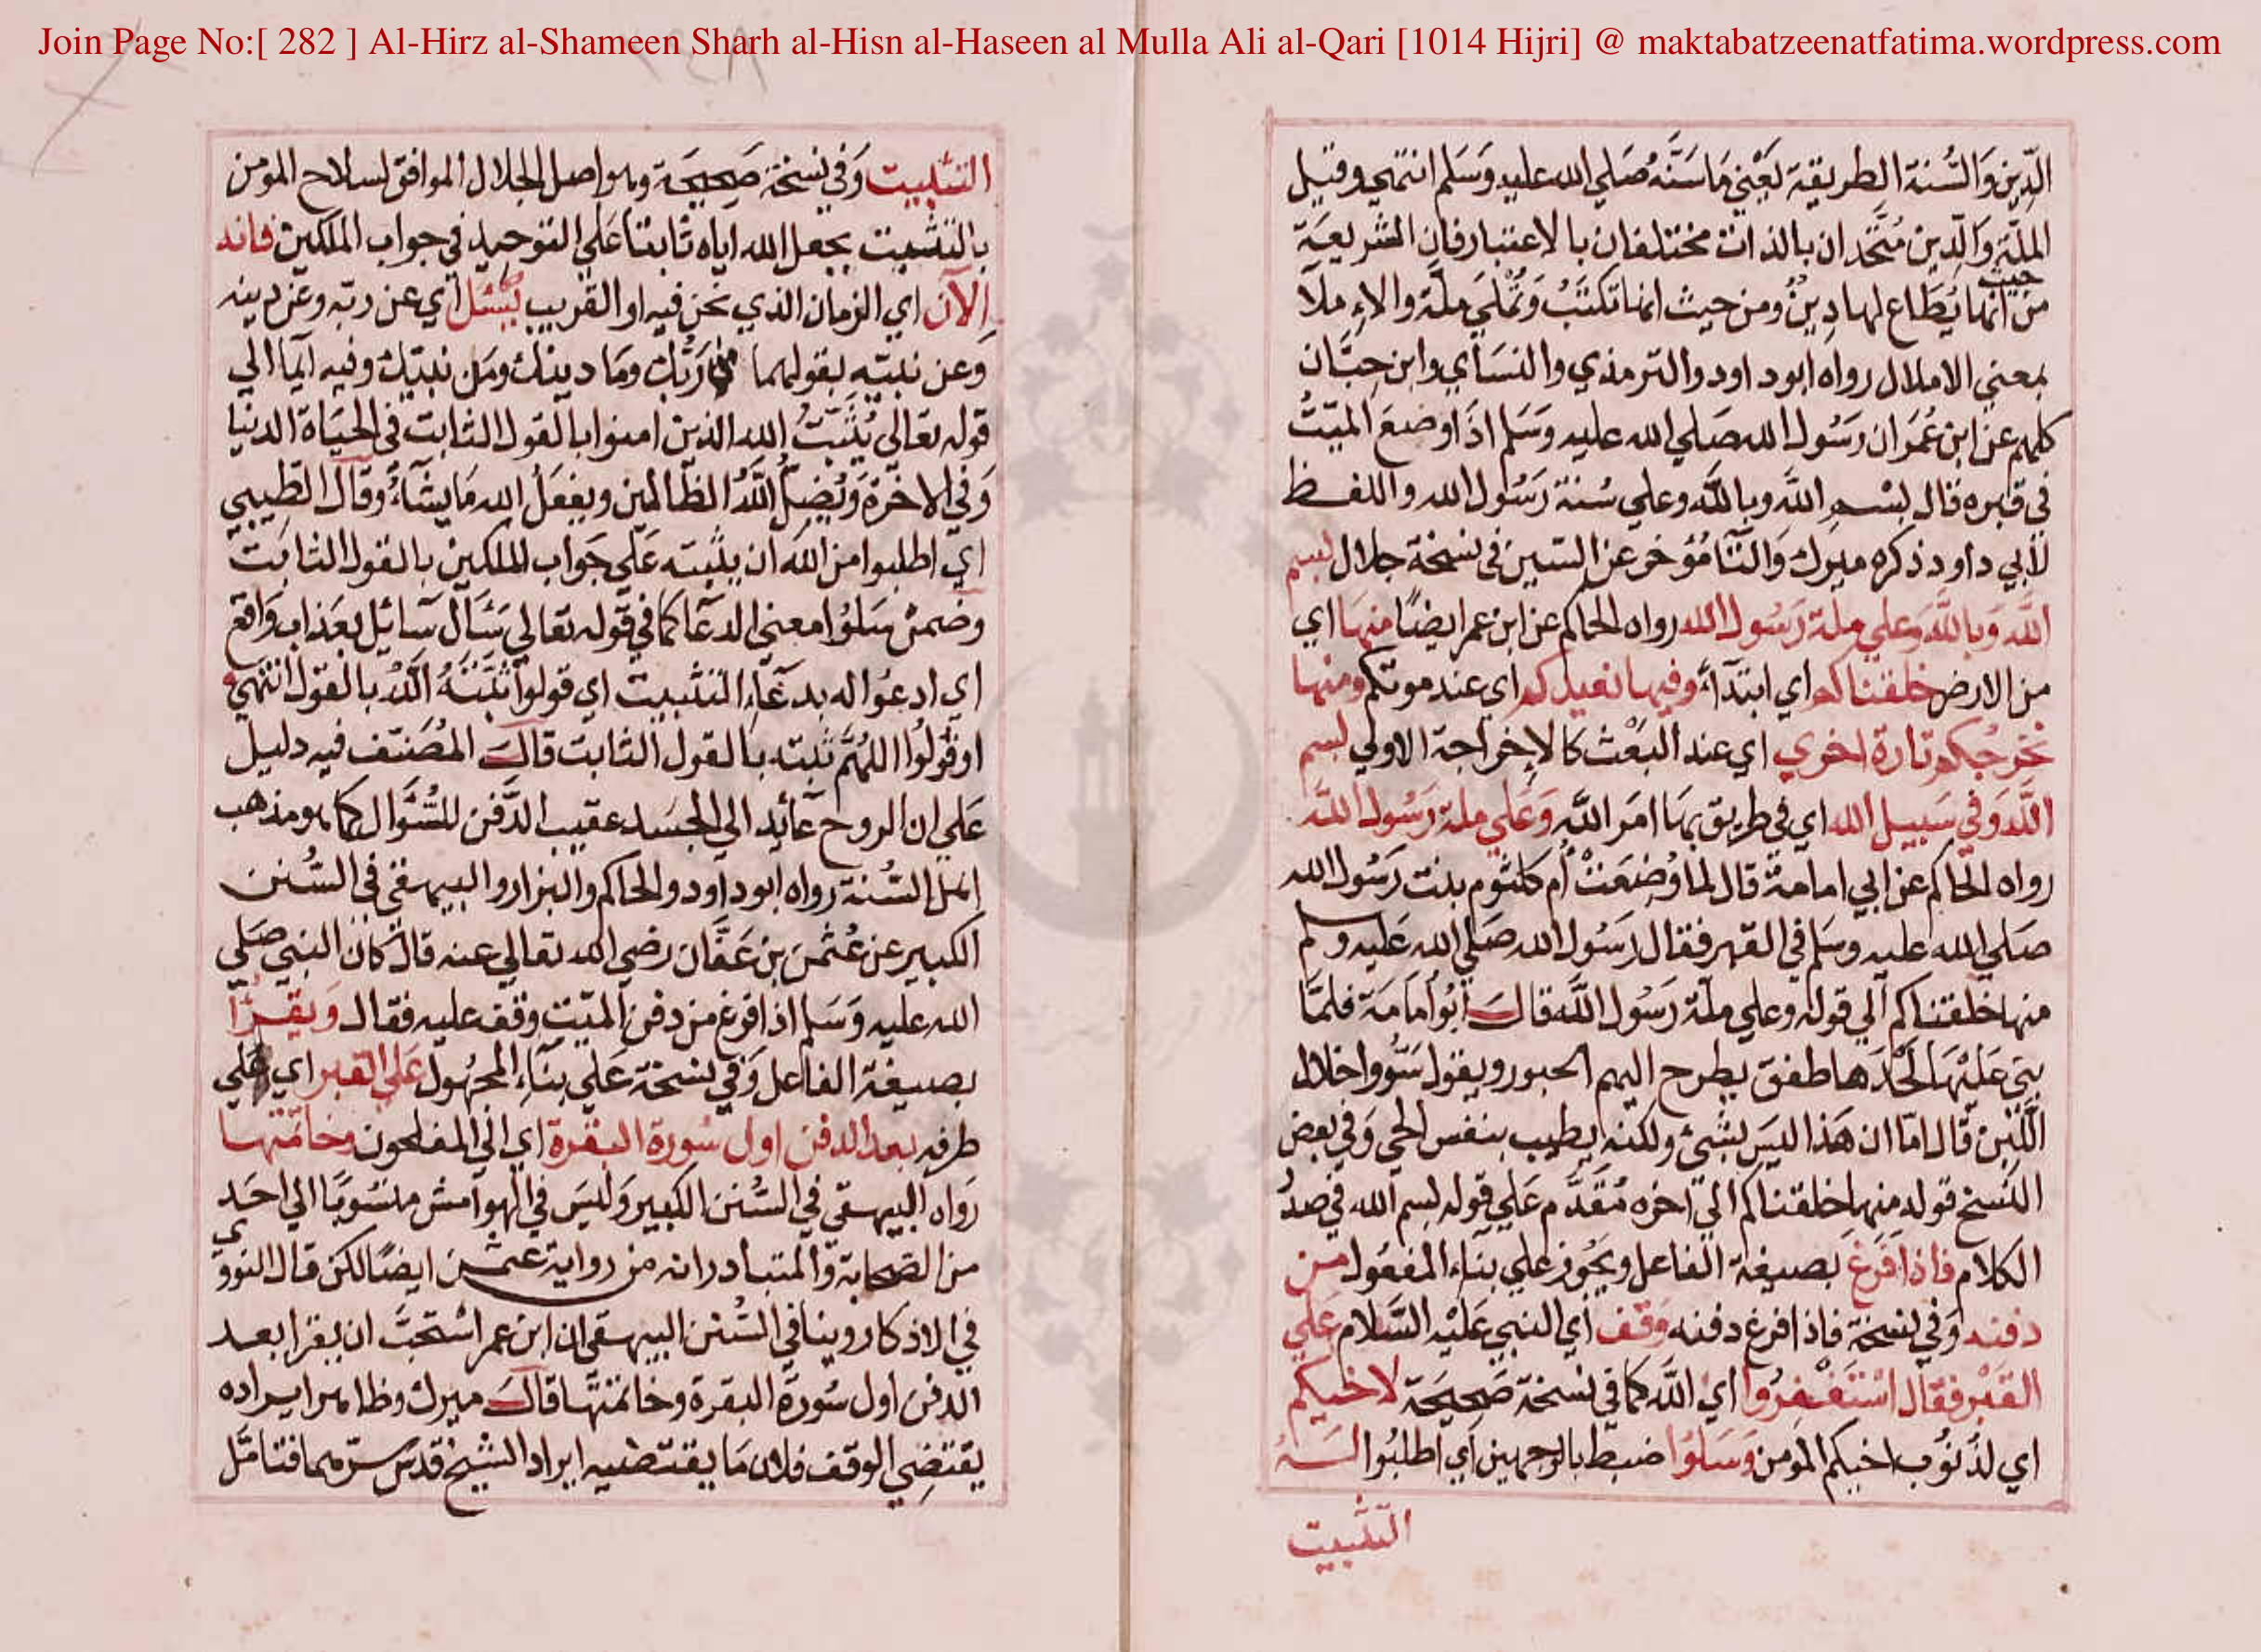 Join Page No:[ 282 ] Al-Hirz al-Shameen Sharh al-Hisn al-Haseen al Mulla Ali al-Qari [1014 Hijri] @ maktabatzeenatfatima.wordpress.com
الدين والسنة الطريقة يعني ما سنه صلي الله عليه وسلم انتهي وقيل
الملة والدين متحدان بالذات مختلفان بالاعتبار فان الشريعة
من حيث انها يطاع لها دين ومن حيث انها تكتب وتملي ملة والاملا
بمعني الاملال رواه ابو داود والترمذي والنسآي وابن حبان
كلهم عن ابن عمر ان رسول الله صلي الله عليه وسلم اذا وضع الميت
في قبره قال بسم الله وبالله وعلي سنة رسول الله واللفظ
لابي داود ذكره ميرك والتا مؤخر عن السين في نسخة جلال بسم
الله وبالله وعلي ملة رسول الله رواه الحاكم عن ابن عمر ايضا منها اي
من الارض خلقناكم اي ابتدآء وفيها نعيدكم اي عند موتكم ومنها
نخرجكم تارة اخري اي عند البعث كالاخراجة الاولي بسم
الله وفي سبيل الله اي في طريق بما امر الله وعلي ملة رسول الله
رواه الحاكم عن ابي امامة قال لما وضعت ام كلثوم بنت رسول الله
صلي الله عليه وسلم في القبر فقال رسول الله صلي الله عليه وسلم
منها خلقناكم الي قوله وعلي ملة رسول الله قال ابو امامة فلما
بني عليها لحدها طفق يطرح اليهم الحبور ويقول سووا خلال
اللبن قال اما ان هذا ليس بشئ ولكنه يطيب بنفس الحي وفي بعض
النسخ قوله منها خلقناكم الي اخره مقدم علي قوله بسم الله في صدر
الكلام فاذا فرغ بصيغة الفاعل ويجوز علي بناء المفعول من
دفنه وفي نسخة فاذا فرغ دفنه وقف اي النبي عليه السلام علي
القبر فقال استغفروا اي الله كما في نسخة صحيحة لاخيكم
اي لذنوب اخيكم المؤمن وسلوا ضبط بالوجهين اي اطلبوا
التثبيت
التثبيت وفي نسخة صحيحة وهو اصل الجلال الموافق لسلاح المؤمن
بالتثبيت بجعل الله اياه ثابتا علي التوحيد في جواب الملكين فانه
الآن اي الزمان الذي نحن فيه او القريب يسئل اي عن ربه وعن دينه
وعن نبيه بقولهما من ربك وما دينك ومن نبيك وفيه ايما الي
قوله تعالي يثبت الله الذين امنوا بالقول الثابت في الحياة الدنيا
وفي الاخرة ويضل الله الظالمين ويفعل الله ما يشآء وقال الطيبي
اي اطلبوا من الله ان يثبته علي جواب الملكين بالقول الثابت
وضمن سلوا معني الدعا كما في قوله تعالي سأل سائل بعذاب واقع
اي ادعوا له بدعآء التثبيت اي قولوا ثبته الله بالقول انتهي
او قولوا اللهم ثبته بالقول الثابت قال المصنف فيه دليل
علي ان الروح عائد الي الجسد عقيب الدفن للسؤال كما هو مذهب
اهل السنة رواه ابو داود والحاكم والبزار والبيهقي في السنن
الكبير عن عثمن بن عفان رضي الله تعالي عنه قال كان النبي صلي
الله عليه وسلم اذا فرغ من دفن الميت وقف عليه فقال ويقرأ
بصيغة الفاعل وفي نسخة علي بناء المجهول علي القبر اي علي
طرفه بعد الدفن اول سورة البقرة اي الي المفلحون وخاتمتها
رواه البيهقي في السنن الكبير وليس في الهوامش منسوبا الي احد
من الصحابة والمتبادر انه من رواية عثمن ايضا لكن قال النووي
في الاذكار روينا في السنن البيهقي ان ابن عمر استحب ان يقرا بعد
الدفن اول سورة البقرة وخاتمتها قال ميرك وظاهر ايراده
يقتضي الوقف فلان ما يقتضيه ايراد الشيخ قدس سرهما فتامل